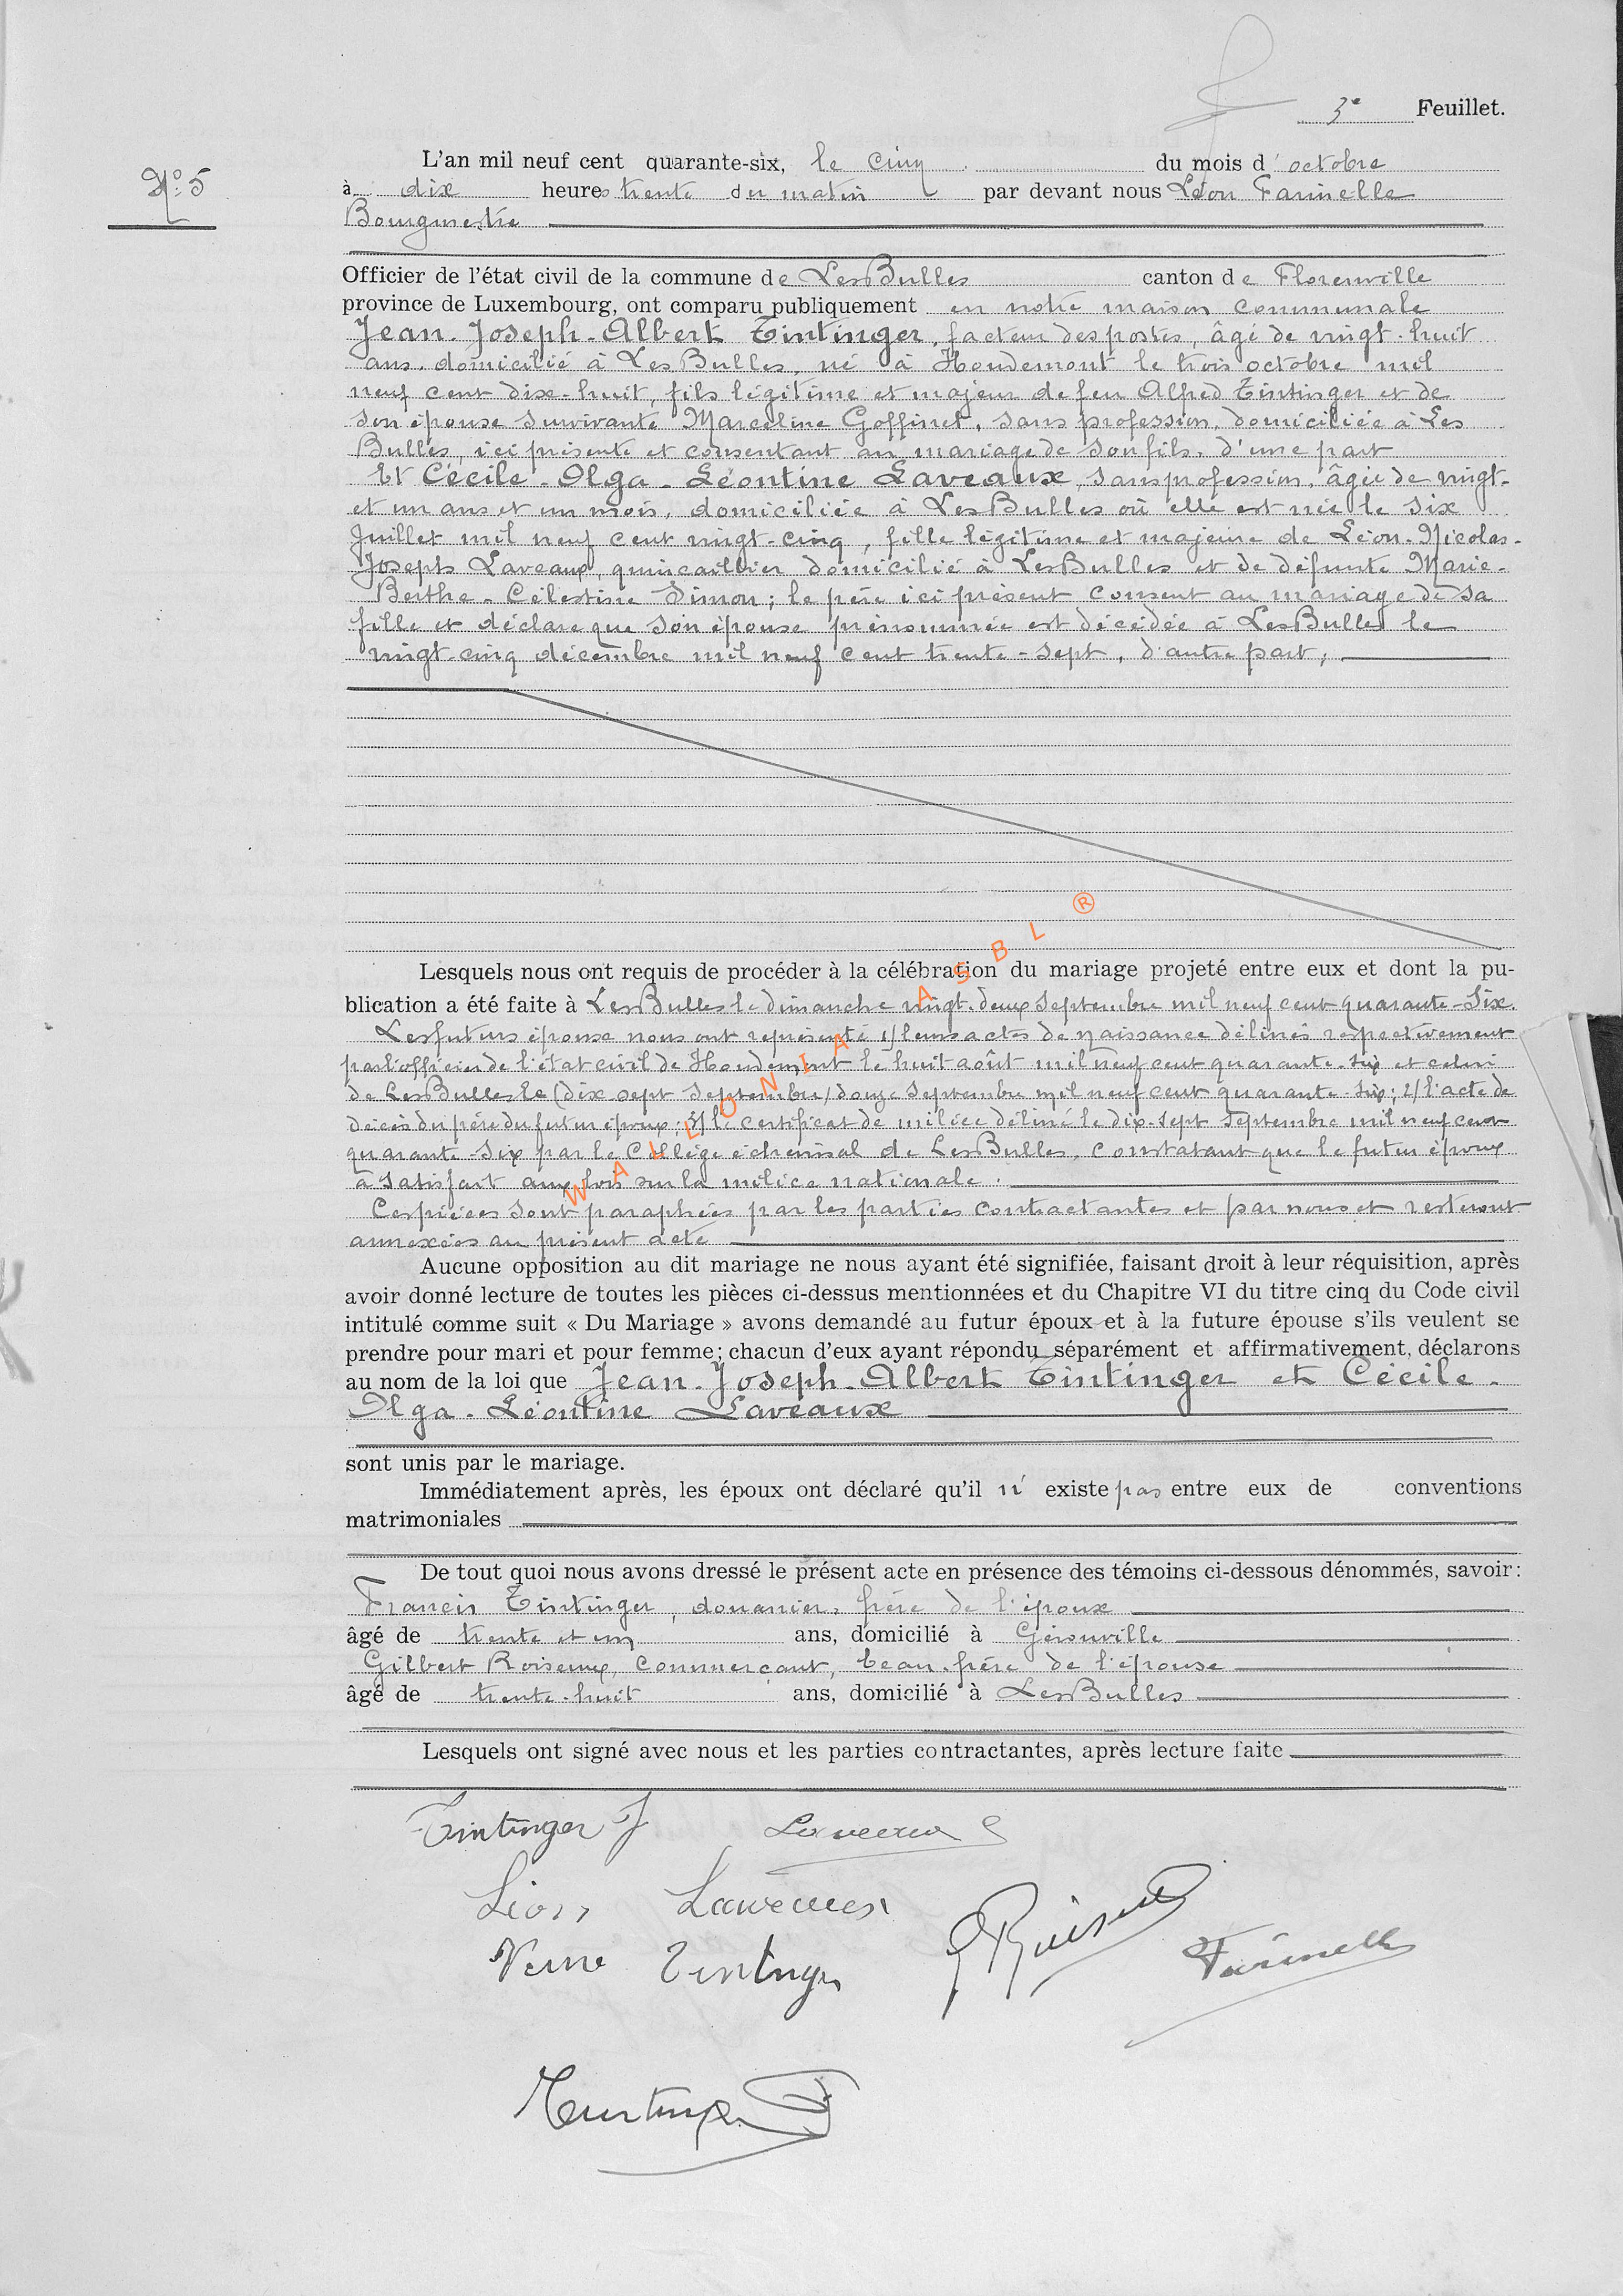 3e Feuillet.
L'an mil neuf cent quarante-six, le cinq du mois d'octobre
N° 5
à dix heures trente du matin par devant nous Léon Farinelle
Bourgmestre
Officier de l'état civil de la commune de LesBulles canton de Florenville
province de Luxembourg, ont comparu publiquement en notre maison communale
Jean-Joseph-Albert Tintinger, facteur des postes, âgé de vingt-huit
ans, domicilié à LesBulles, né à Houdemont le trois octobre mil
neuf cent dix-huit, fils légitime et majeur de feu Alfred Tintinger et de
son épouse survivante Marceline Goffinet, sans profession, domiciliée à Les
Bulles, ici présente et consentant au mariage de son fils, d'une part
Et Cécile-Olga-Léontine Laveaux, sans profession, âgée de vingt-
et un ans et un mois, domiciliée à LesBulles où elle est née le six
Juillet mil neuf cent vingt-cinq, fille légitime et majeure de Léon-Nicolas-
Joseph Laveaux, quincaillier domicilié à LesBulles et de défunte Marie-
Berthe-Célestine Simon; le père ici présent consent au mariage de sa
fille et déclare que son épouse prénommée est décédée à LesBulles le
vingt-cinq décembre mil neuf cent trente-sept, d'autre part;
Lesquels nous ont requis de procéder à la célébration du mariage projeté entre eux et dont la pu-
blication a été faite à LesBulles le dimanche vingt-deux septembre mil neuf cent quarante-six.
Les futurs époux nous ont représenté 1/ leurs actes de naissance délivrés respectivement
par l'officier de l'état civil de Houdemont le huit août mil neuf cent quarante-six et celui
de LesBulles le (dix sept septembre) douze septembre mil neuf cent quarante-six; 2/ l'acte de
décès du père du futur époux; 3/ le certificat de milice délivré le dix-sept septembre mil neuf cent
quarante-six par le Collège échevinal de LesBulles, constatant que le futur époux
a satisfait aux lois sur la milice nationale.
Ces pièces sont paraphées par les parties contractantes et par nous et resteront
annexées au présent acte
Aucune opposition au dit mariage ne nous ayant été signifiée, faisant droit à leur réquisition, après
avoir donné lecture de toutes les pièces ci-dessus mentionnées et du Chapitre VI du titre cinq du Code civil
intitulé comme suit « Du Mariage » avons demandé au futur époux et à la future épouse s'ils veulent se
prendre pour mari et pour femme; chacun d'eux ayant répondu séparément et affirmativement, déclarons
au nom de la loi que Jean-Joseph-Albert Tintinger et Cécile-
Olga-Léontine Laveaux
sont unis par le mariage.
Immédiatement après, les époux ont déclaré qu'il n'existe pas entre eux de conventions
matrimoniales
De tout quoi nous avons dressé le présent acte en présence des témoins ci-dessous dénommés, savoir:
Francis Tintinger, douanier, frère de l'époux
âgé de trente et un ans, domicilié à Gérouville
Gilbert Roiseux, commerçant, beau-frère de l'épouse
âgé de trente-huit ans, domicilié à LesBulles
Lesquels ont signé avec nous et les parties contractantes, après lecture faite
Tintinger J Laveaux C
Léon Laveaux
Veuve Tintinger
Farinelle
WALLONIA ASBL ®